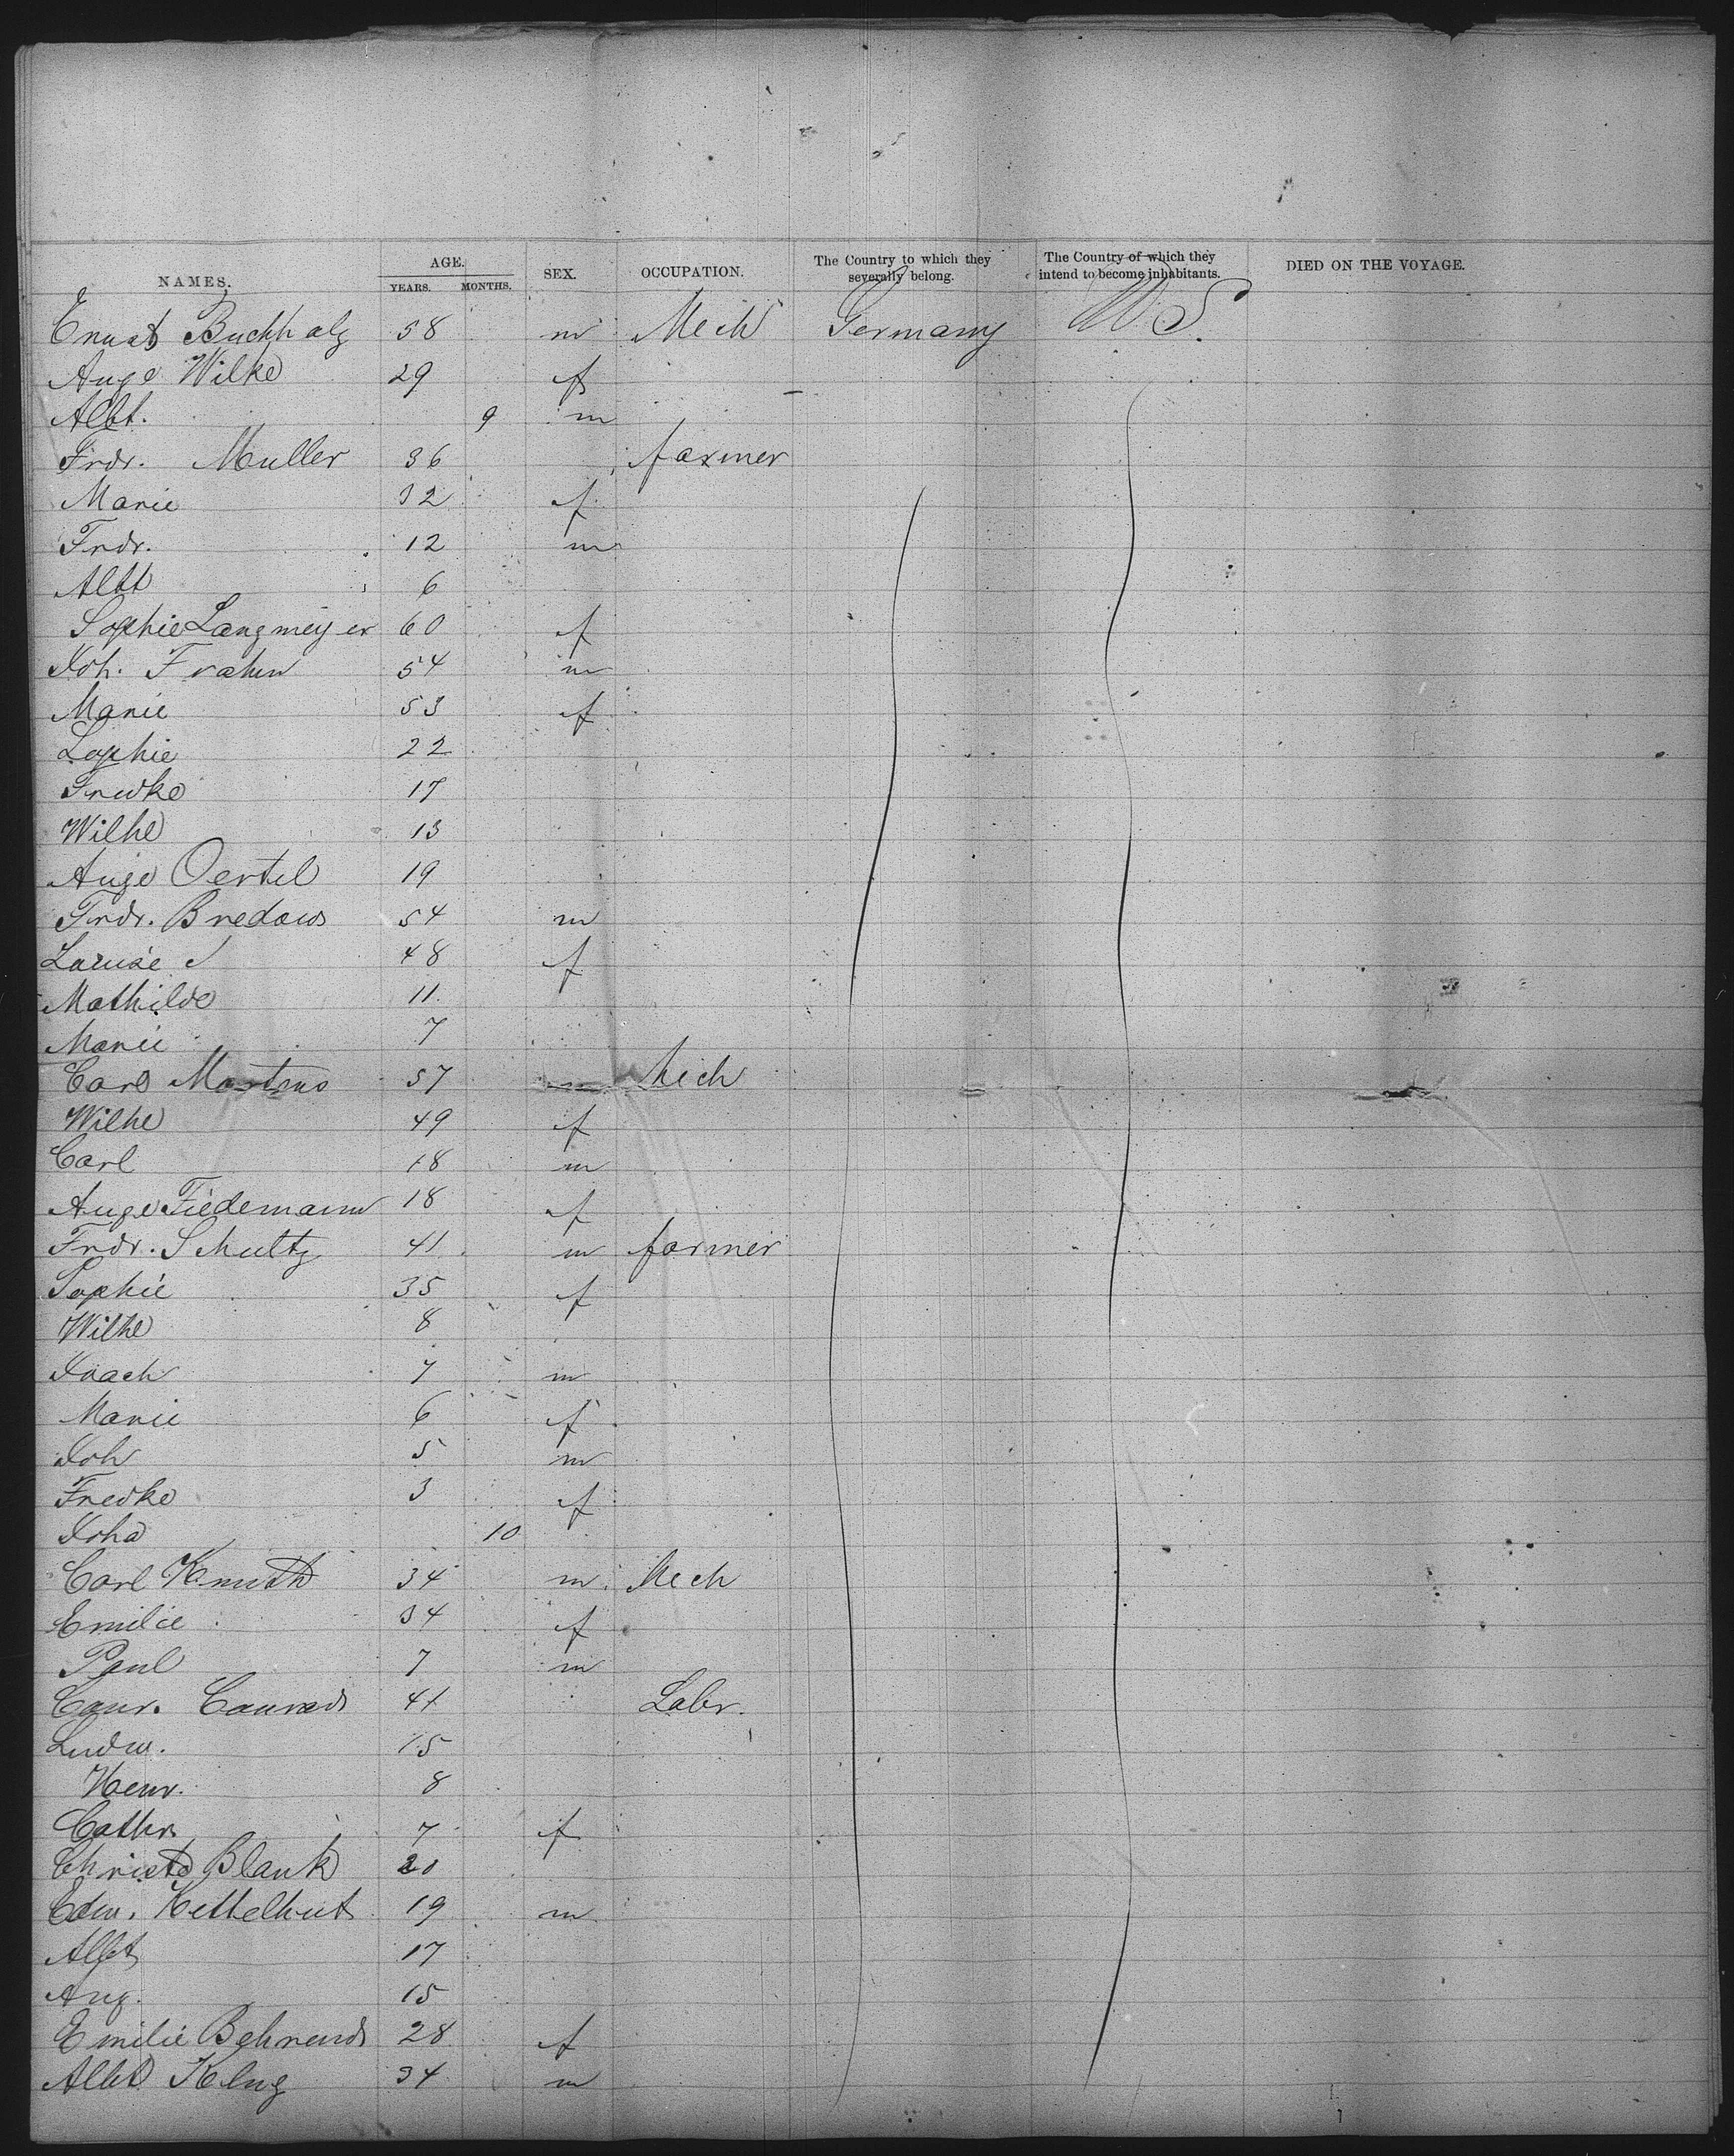 NAMES. AGE. YEARS. MONTHS. SEX. OCCUPATION. The Country to which they severally belong. The Country of which they intend to become inhabitants. DIED ON THE VOYAGE.
Ernst Buchholz 58 m Mech Germany U.S.
Auge Wilke 29 f
Albt. 9 m
Frdr. Muller 36 farmer
Marie 32 f
Frdr. 12 m
Albt 6
Sophie Langmeyer 60 f
Joh. Frahm 54 m
Marie 53 f
Sophie 22
Fredke 17
Wilhe 13
Auge Oertel 19
Frdr. Bredow 54 m
Louise 48 f
Mathilde 11
Marie 7
Carl Martens 57 m Mech
Wilhe 49 f
Carl 18 m
Auge Tiedemann 18 f
Frdr. Schultz 41 m farmer
Sophie 35 f
Wilhe 8
Joach 7 m
Marie 6 f
Joh 5 m
Fredke 3 f
Joha 10
Carl Knuth 34 m Mech
Emilie 34 f
Paul 7 m
Conr. Conrads 41 Labr.
Ludw. 15
Henr. 8
Cathr 7 f
Christe Blank 20
Edw. Kettelhut 19 m
Albt 17
Aug. 15
Emilie Behrends 28 f
Albt Klug 34 m